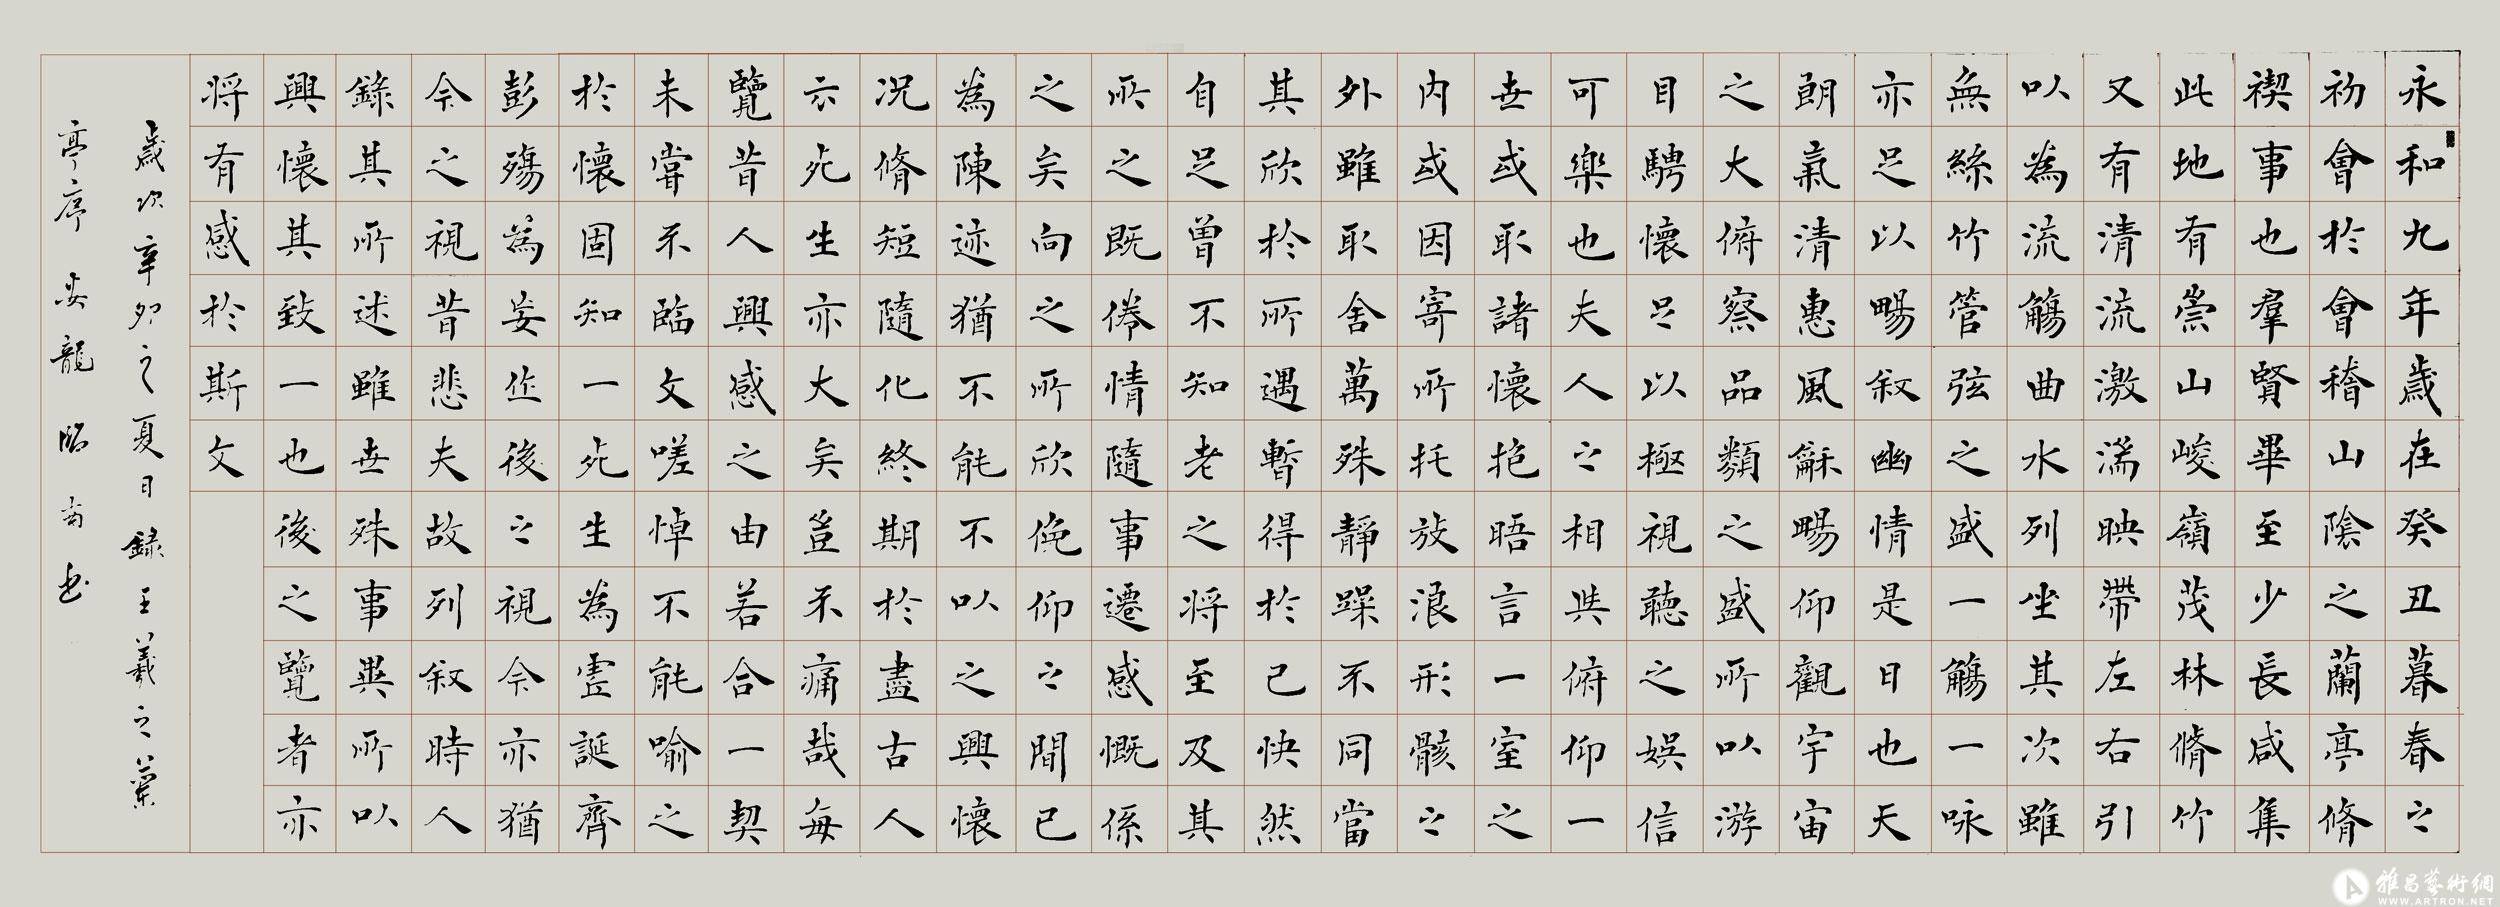 永和九年歲在癸丑暮春之
初會於會稽山陰之蘭亭脩
禊事也羣賢畢至少長咸集
此地有崇山峻嶺茂林脩竹
又有清流激湍映帶左右引
以為流觴曲水列坐其次雖
無絲竹管弦之盛一觴一咏
亦足以暢敘幽情是日也天
朗氣清惠風龢暢仰觀宇宙
之大俯察品類之盛所以游
目騁懷足以極視聽之娛信
可樂也夫人之相與俯仰一
世或取諸懷抱晤言一室之
內或因寄所托放浪形骸之
外雖取舍萬殊靜躁不同當
其欣於所遇暫得於己快然
自足曾不知老之將至及其
所之既倦情隨事遷感慨係
之矣向之所欣俛仰之間已
為陳迹猶不能不以之興懷
況脩短隨化終期於盡古人
云死生亦大矣豈不痛哉每
覽昔人興感之由若合一契
未嘗不臨文嗟悼不能喻之
於懷固知一死生為虛誕齊
彭殤為妄作後之視今亦猶
今之視昔悲夫故列敘時人
錄其所述雖世殊事異所以
興懷其致一也後之覽者亦
將有感於斯文
歲次辛卯之夏日錄王羲之蘭
亭序 安龍 書
雅昌藝術網
WWW.ARTRON.NET